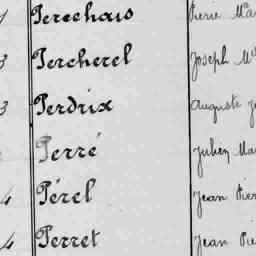 Perechais Pierre Ma
3 Percherel Joseph M
3 Perdrix Auguste J
Perré Julien Ma
4 Pérel Jean Pier
4 Perret Jean Pie